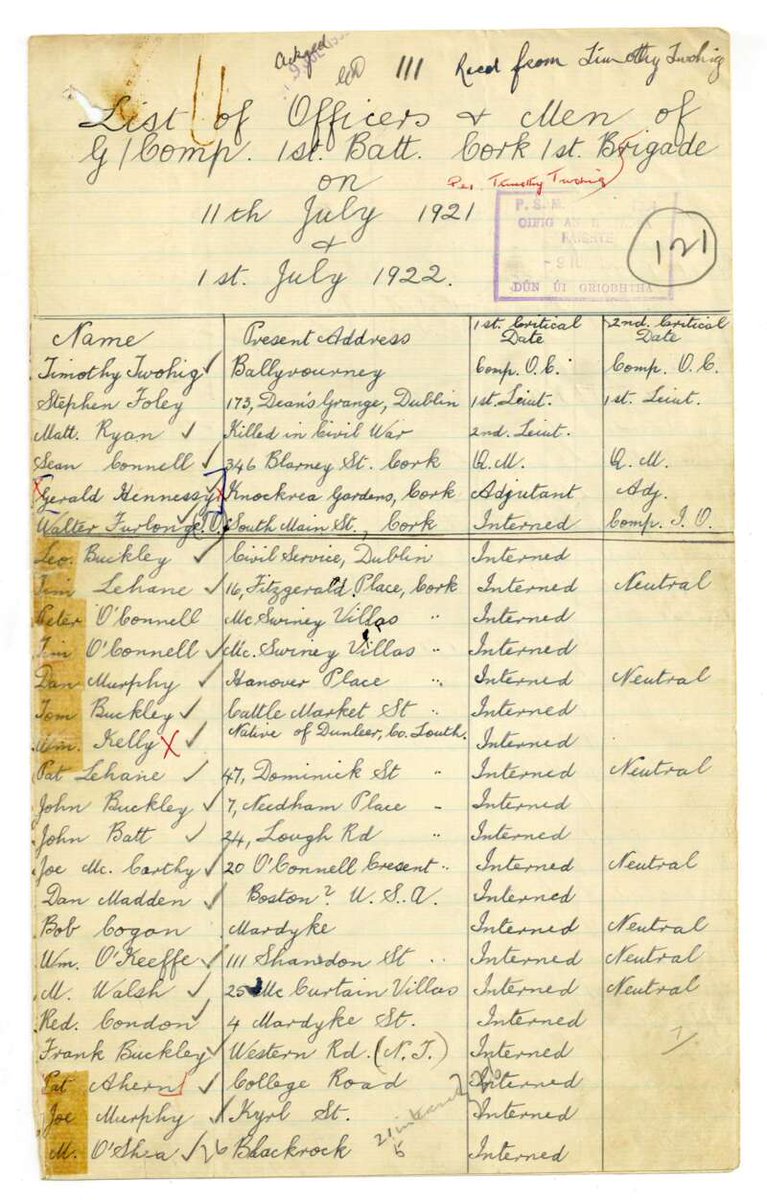 Ackged
111 Recd from Timothy Twohig
List of Officers & Men of
G/Comp. 1st. Batt. Cork 1st. Brigade
on Per Timothy Twohig
11th July 1921
&
1st. July 1922.
P.S.M.
OIFIG AN
DÚN UÍ GRIOBHTHA
121
Name Present Address 1st. Critical Date 2nd. Critical Date
Timothy Twohig ✓ Ballyvourney Comp. O.C. Comp. O.C.
Stephen Foley 173, Dean's Grange, Dublin 1st Leiut. 1st Leiut.
Matt. Ryan ✓ Killed in Civil War 2nd. Leiut.
Sean Connell ✓ 346 Blarney St. Cork Q.M. Q.M.
Gerald Hennessy Knockrea Gardens, Cork Adjutant Adj.
Walter Furlonge South Main St., Cork Interned Comp. I.O.
Leo. Buckley ✓ Civil Service, Dublin Interned
Tim Lehane ✓ 16, Fitzgerald Place, Cork Interned Neutral
Peter O'Connell McSwiney Villas " Interned
Tim O'Connell ✓ Mc. Swiney Villas " Interned
Dan Murphy ✓ Hanover Place " Interned Neutral
Tom Buckley ✓ Cattle Market St " Interned
Wm. Kelly X ✓ Native of Dunleer, Co. Louth. Interned
Pat Lehane ✓ 47, Dominick St " Interned Neutral
John Buckley ✓ 7, Needham Place - Interned
John Batt ✓ 24, Lough Rd " Interned
Joe Mc. Carthy ✓ 20 O'Connell Cresent " Interned Neutral
Dan Madden ✓ Boston? U.S.A. Interned
Bob Cogan Mardyke Interned Neutral
Wm. O'Keeffe ✓ 111 Shandon St " Interned Neutral
M. Walsh ✓ 25 Mc Curtain Villas Interned Neutral
Red. Condon ✓ 4 Mardyke St. Interned
Frank Buckley ✓ Western Rd. (N.T.) Interned
Pat Ahern ✓ College Road Interned
Joe Murphy ✓ Kyrl St. Interned
M. O'Shea ✓ 26 Blackrock Interned